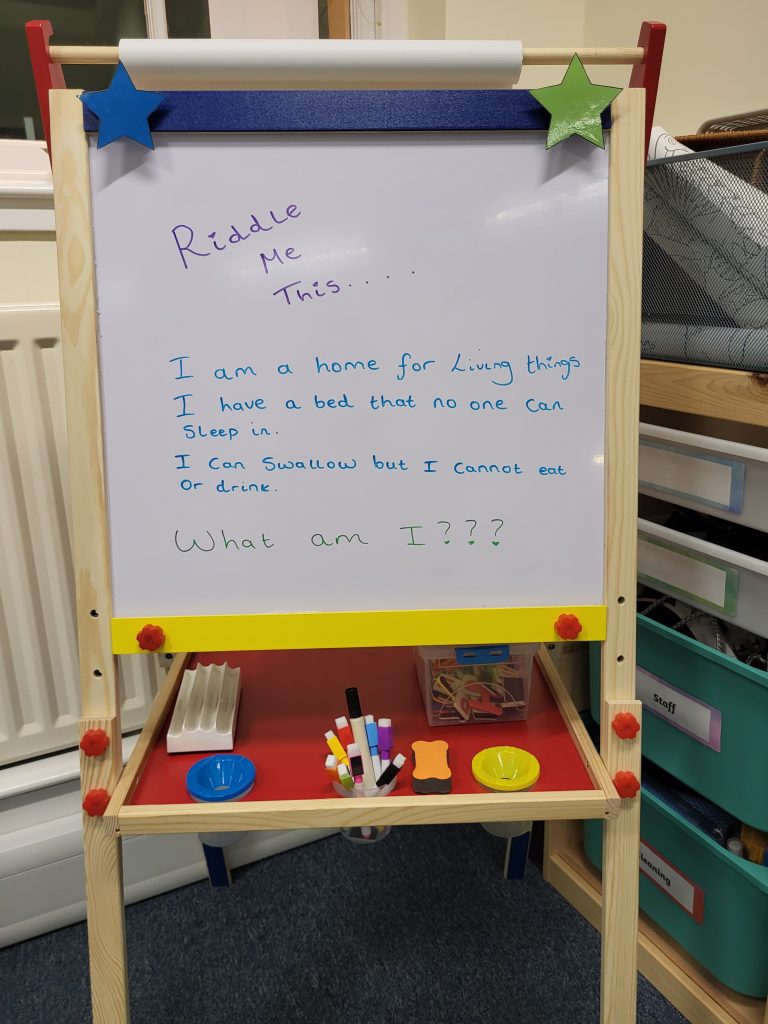 Riddle
Me
This.....
I am a home for Living things
I have a bed that no one can
Sleep in.
I can swallow but I cannot eat
Or drink.
What am I???
Staff
Cleaning